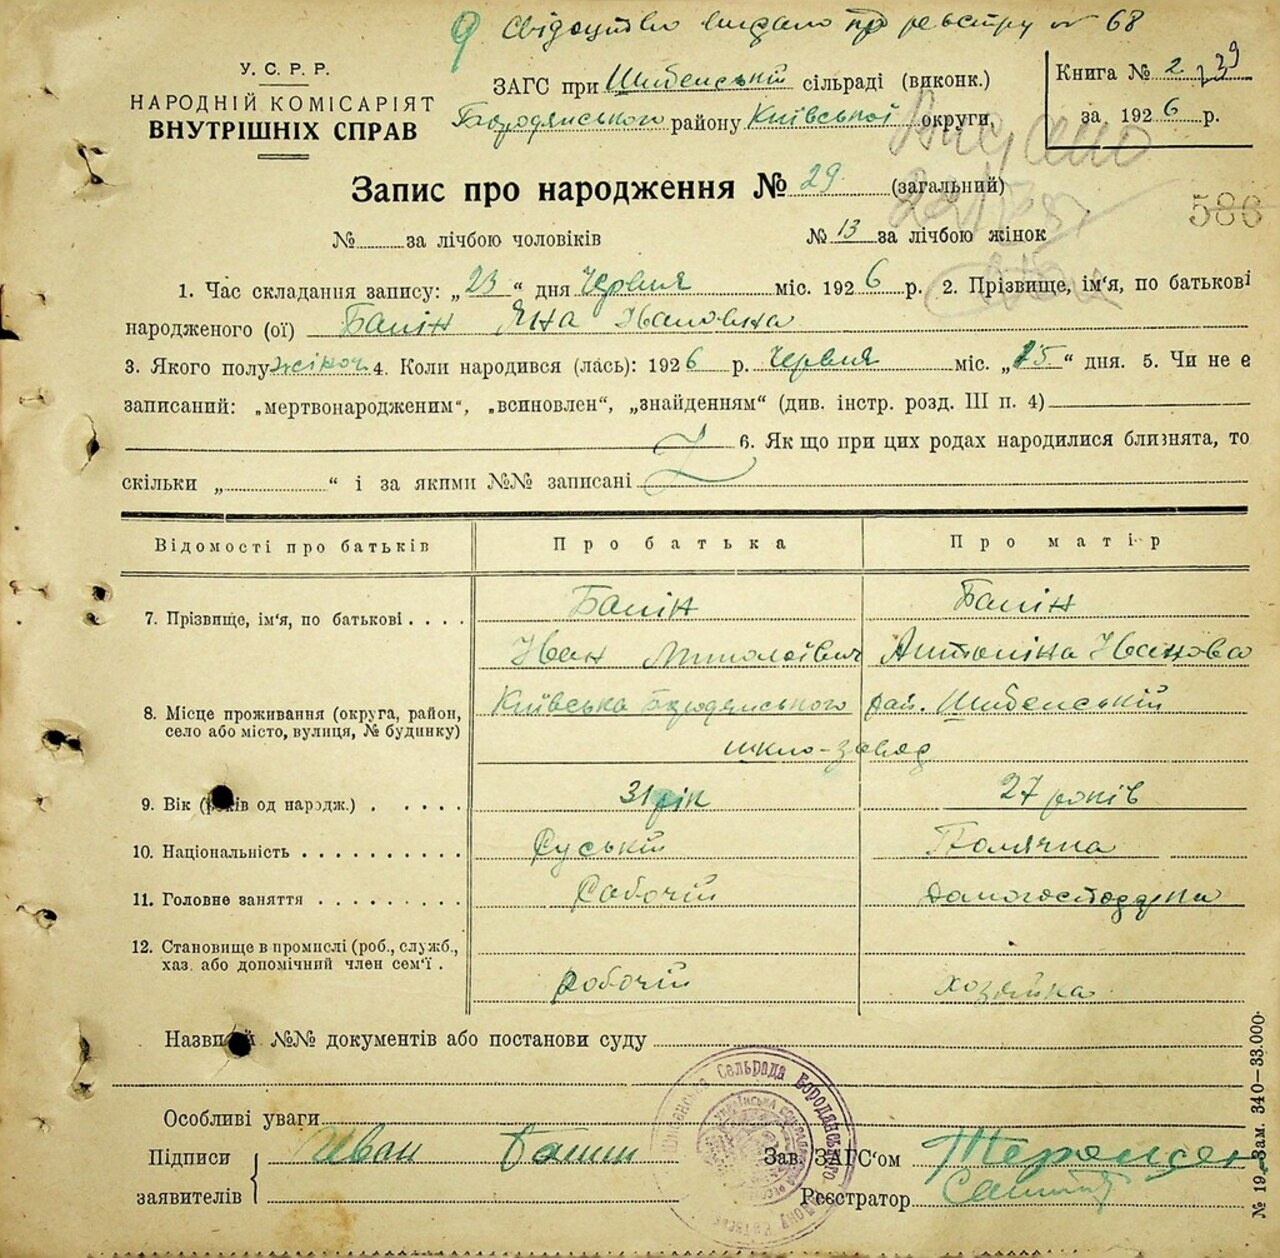 Свідоцтво видано по реєстру № 68
У. С. Р. Р.
НАРОДНІЙ КОМІСАРІЯТ
ВНУТРІШНІХ СПРАВ
ЗАГС при Шибенській сільраді (виконк.)
Бородянського району Київської округи
Книга № 2
за 1926 р.
Видано
Запис про народження № 29 (загальний)
586
№ за лічбою чоловіків № 13 за лічбою жінок
1. Час складання запису: „23“ дня Червня міс. 1926 р. 2. Прізвище, ім'я, по батькові
народженого (ої) Банін Яна Івановна
3. Якого полу жіноч. 4. Коли народився (лась): 1926 р. Червня міс. „15“ дня. 5. Чи не є
записаний: „мертвонародженим“, „всиновлен“, „знайденням“ (див. інстр. розд. III п. 4)
6. Як що при цих родах народилися близнята, то
скільки „ “ і за якими №№ записані
Відомості про батьків Про батька Про матір
7. Прізвище, ім'я, по батькові . . . . Банін Банін
Іван Миколаївич Антоніна Іванова
8. Місце проживання (округа, район,
село або місто, вулиця, № будинку)
Київська Бородянського рай. Шибенській
шкло-завод
9. Вік (років од народж.) . . . . . 31 рік 27 років
10. Національність . . . . . . . . . Руській Полячка
11. Головне заняття . . . . . . . . Робочій Домогосподарка
12. Становище в промислі (роб., служб.,
хаз. або допомічний член сем'ї .
робочій хозяйка
Назви й №№ документів або постанови суду
Особливі уваги
Підписи
заявителів
Иван Банин
Зав. ЗАГС'ом
Реєстратор
Шибенська Сельрада Бородянського району
№ 19. Зам. 340—33.000.